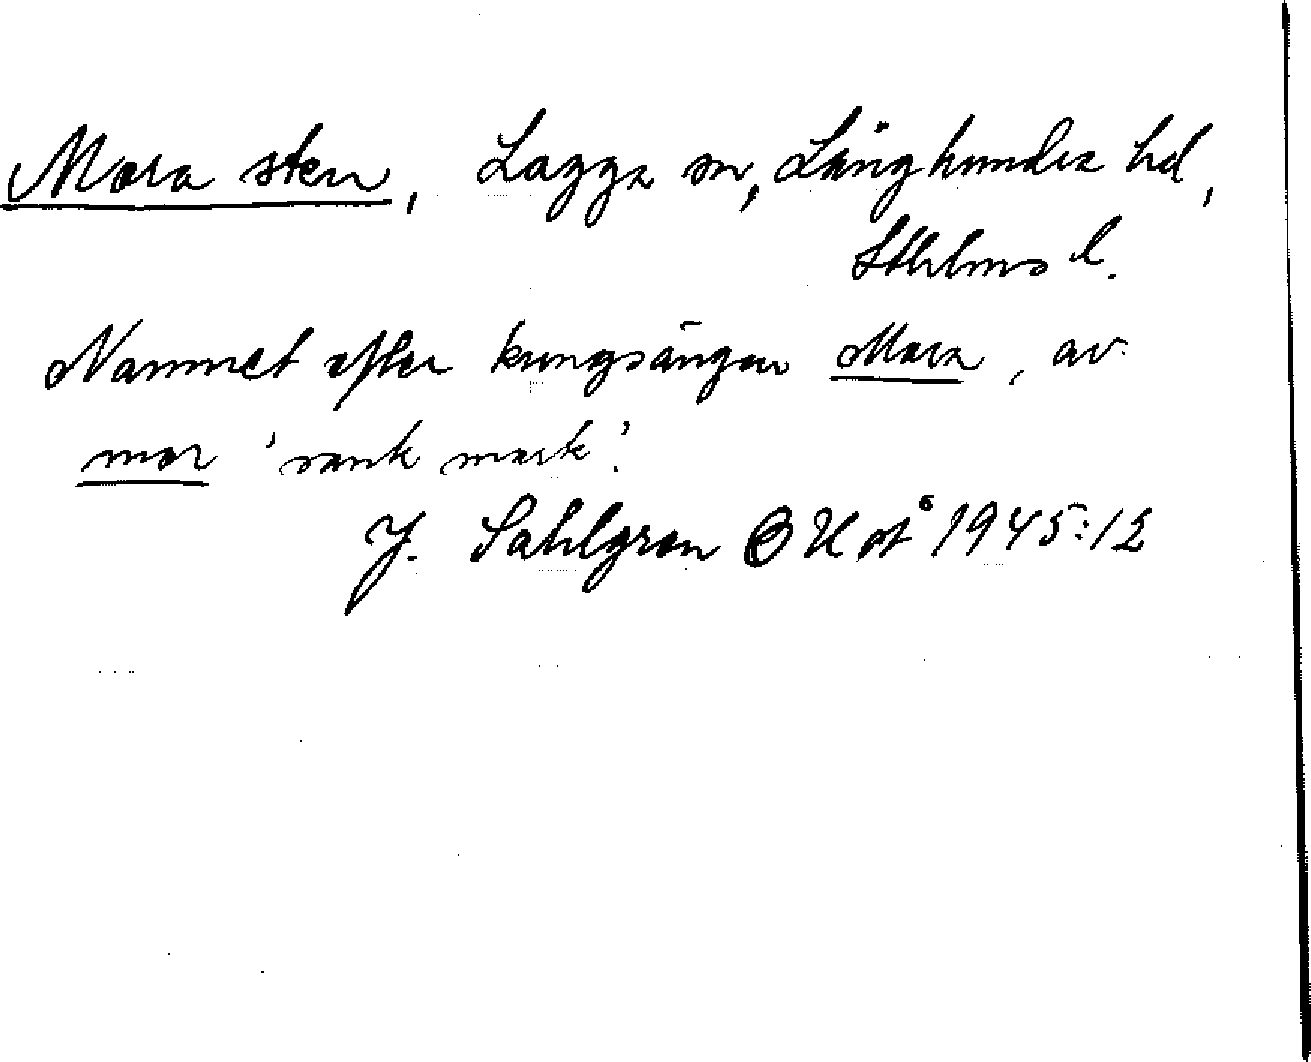 Mora sten, Lagga sn, Långhundra hd,
Sthlms l.
Namnet efter kungsängen Mora, av
mor 'sank mark'.
J. Sahlgren 1945:12